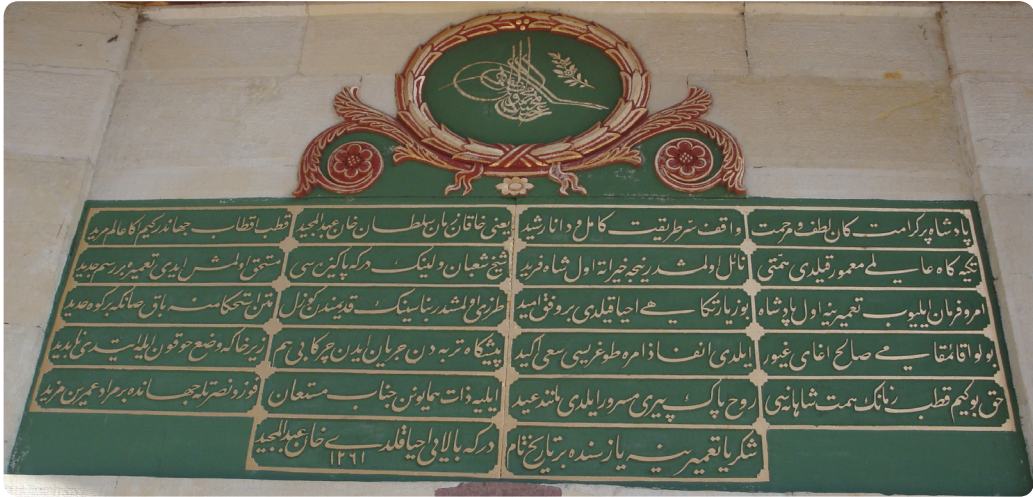 پادشاه پر کرامت کان لطف و مرحمت واقف سر طریقت کامل و دانا رشید یعنی خاقان زمان سلطان خان عبدالمجید قطب اقطاب جهاندر کیم اکا عالم مرید
تکیه کاه عالمی معمور قیلدی همتی نائل اولمشدر نیجه خیراته اول شاه فرید شیخ شعبان ولینک درکه پاکین سی مستحق اولمش ایدی تعمیره بر رسم جدید
امر و فرمان ایلیوب تعمیرینه اول پادشاه بو زیارتکاهی احیا قیلدی بر وفق امید طرزی اولمشدر بناسینک قدیمندن کوزل متن استحکامنه باقی صانکه بر کوه حدید
بولو قائمقامی صالح اغای غیور ایلدی انفاذ امره طوغریسی سعی اکید پیشکاه تربه دن جریان ایدن چرکابی هم زیر خاکه وضع حوقون ایله ایتدی ناپدید
حق بو کیم قطب زمانک همت شاهانه سی روح پاک پیری مسرور ایلدی مانند عید ایلیه ذات همایونن جناب مستعان فوز و نصرتله جهانده بر مراد عمرین مزید
شکریا تعمیرینه یازسنده بر تاریخ تام درکه بالایی احیا قلدی خان عبدالمجید
١٢٦١